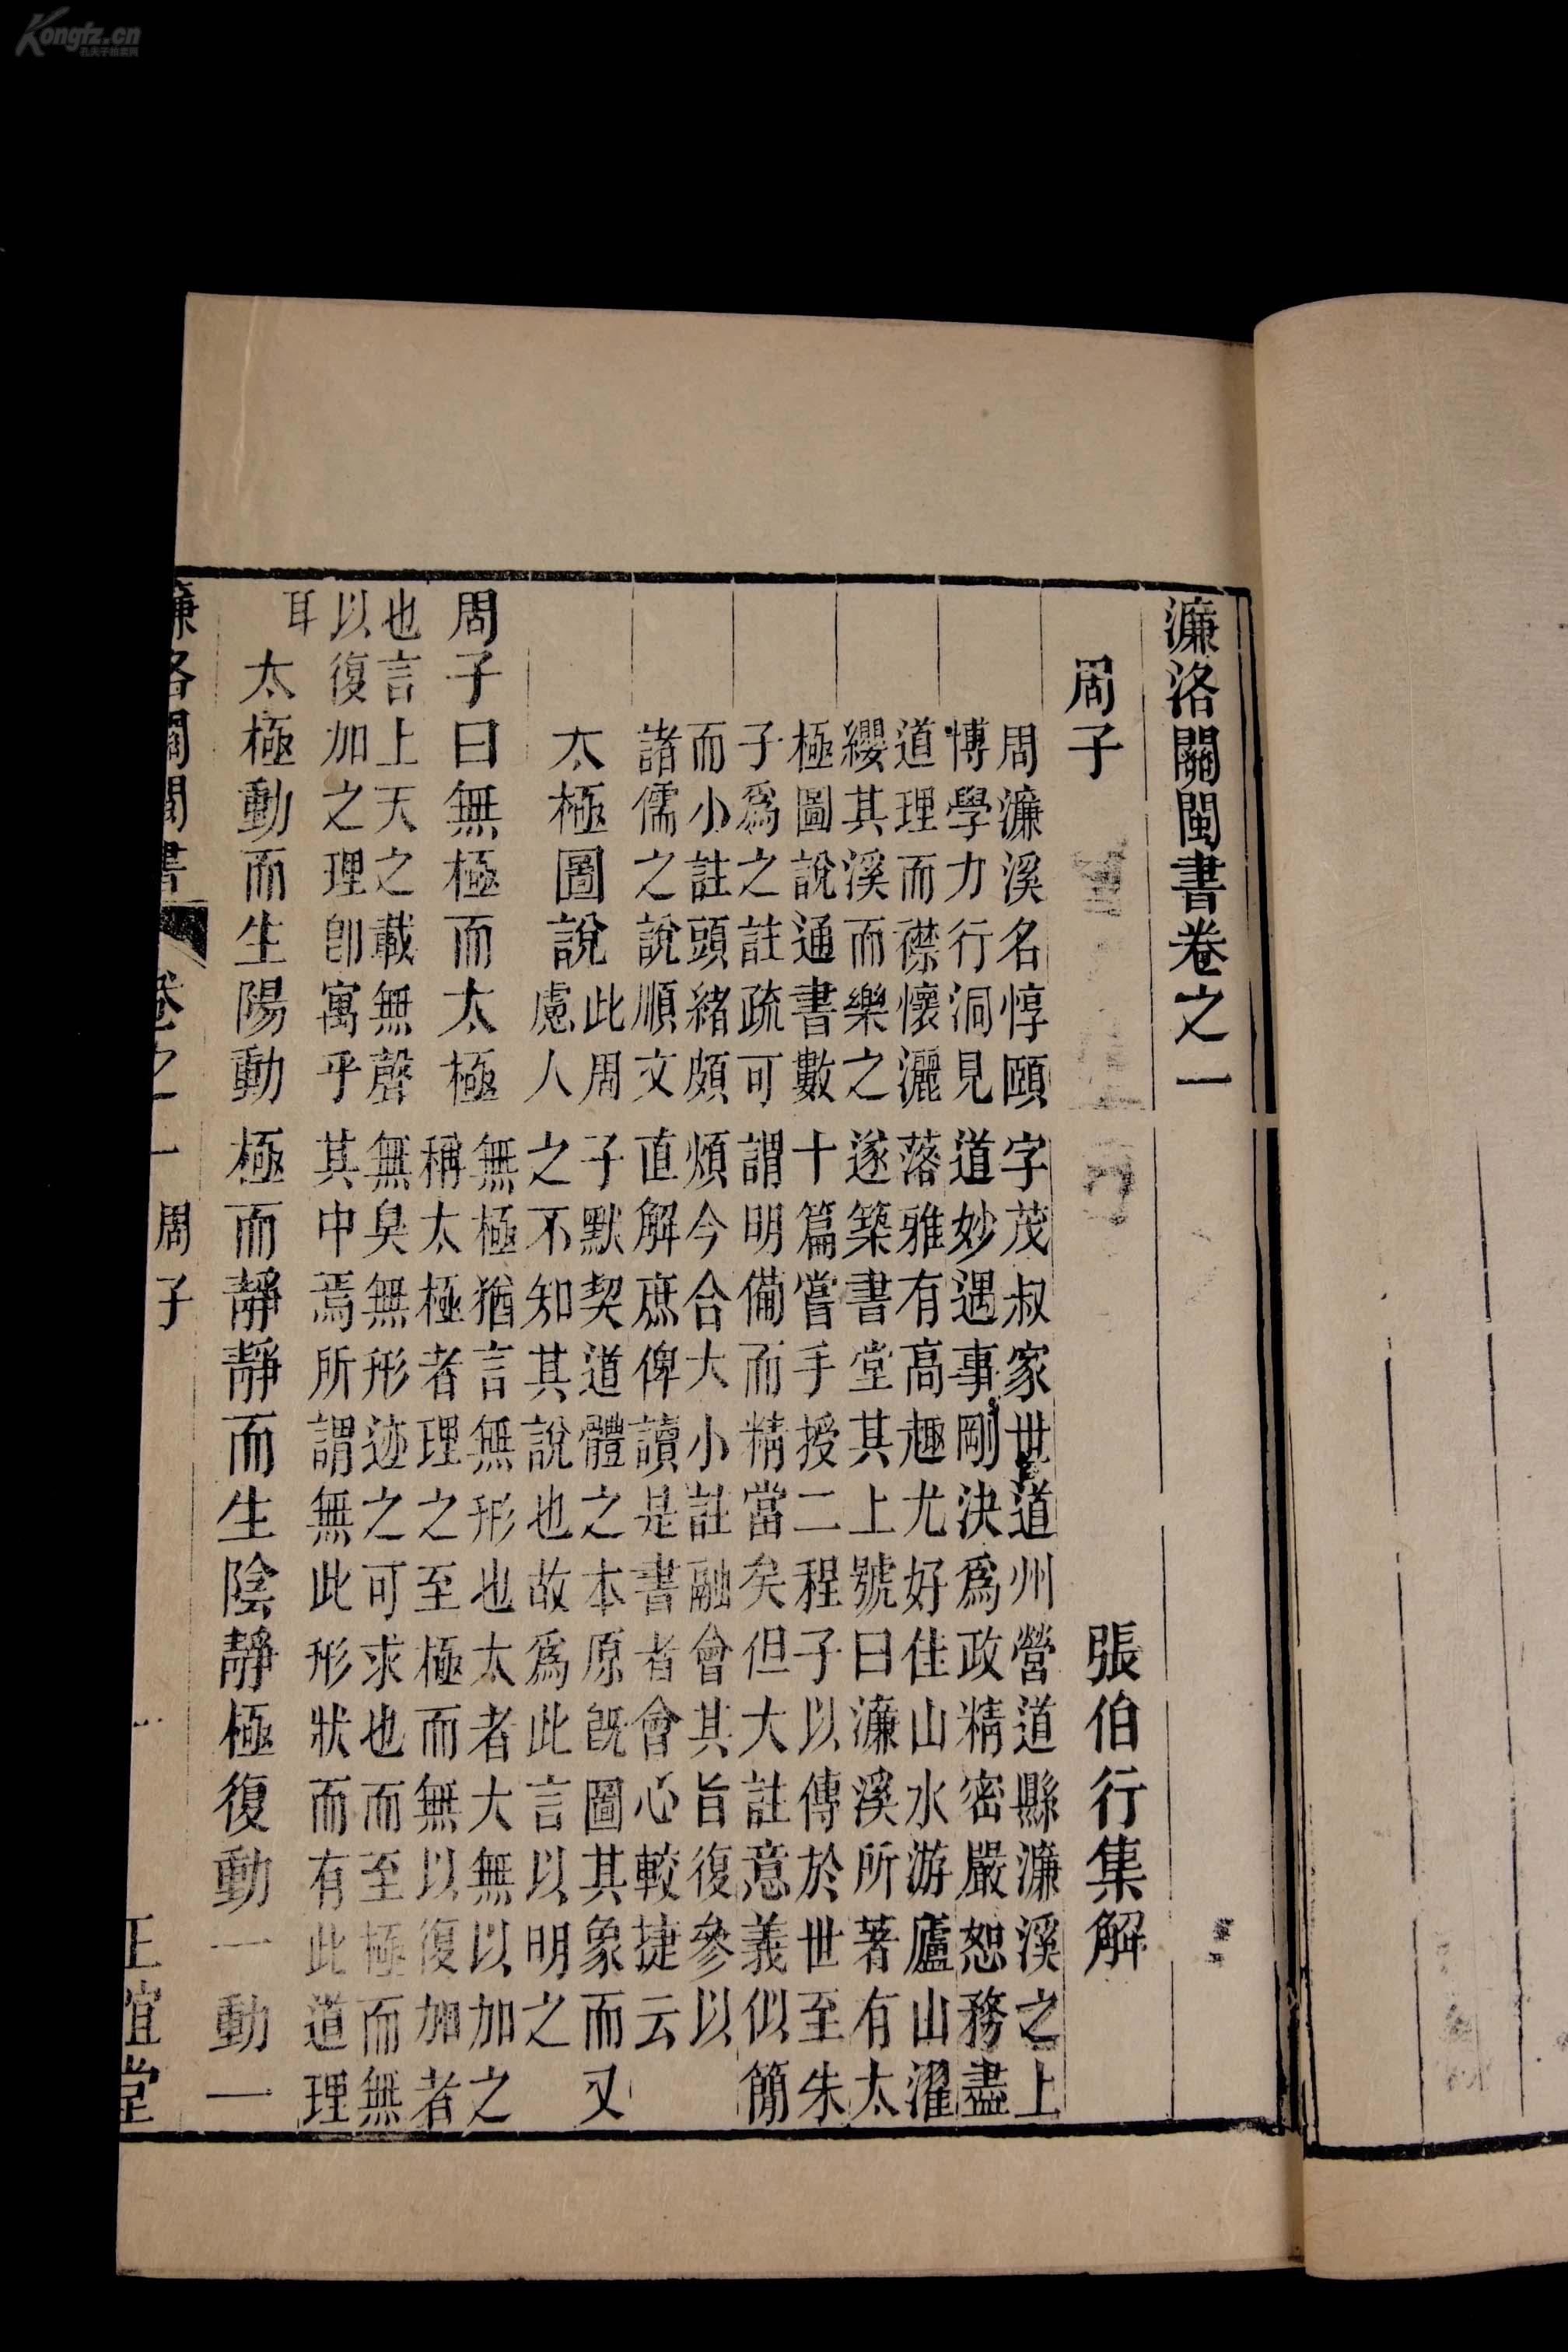 Kongfz.cn
孔夫子旧书网
濂洛關閩書卷之一
周子　張伯行集解
周濂溪名惇頤字茂叔家世道州營道縣濂溪之上
博學力行洞見道妙遇事剛決爲政精密嚴恕務盡
道理而襟懷灑落雅有高趣尤好佳山水游廬山濯
纓其溪而樂之遂築書堂其上號曰濂溪所著有太
極圖說通書數十篇嘗手授二程子以傳於世至朱
子爲之註疏可謂明備而精當矣但大註意義似簡
而小註頭緒頗煩今合大小註融會其旨復參以
諸儒之說順文直解庶俾讀是書者會心較捷云
太極圖說
此周子默契道體之本原旣圖其象而又
慮人之不知其說也故爲此言以明之
周子曰無極而太極
無極猶言無形也太者大無以加之
稱太極者理之至極而無以復加者
也言上天之載無聲無臭無形迹之可求也而至極而無
以復加之理卽寓乎其中焉所謂無此形狀而有此道理
耳
太極動而生陽動極而靜靜而生陰靜極復動一動一
濂洛關閩書　卷之一　周子　一　正誼堂